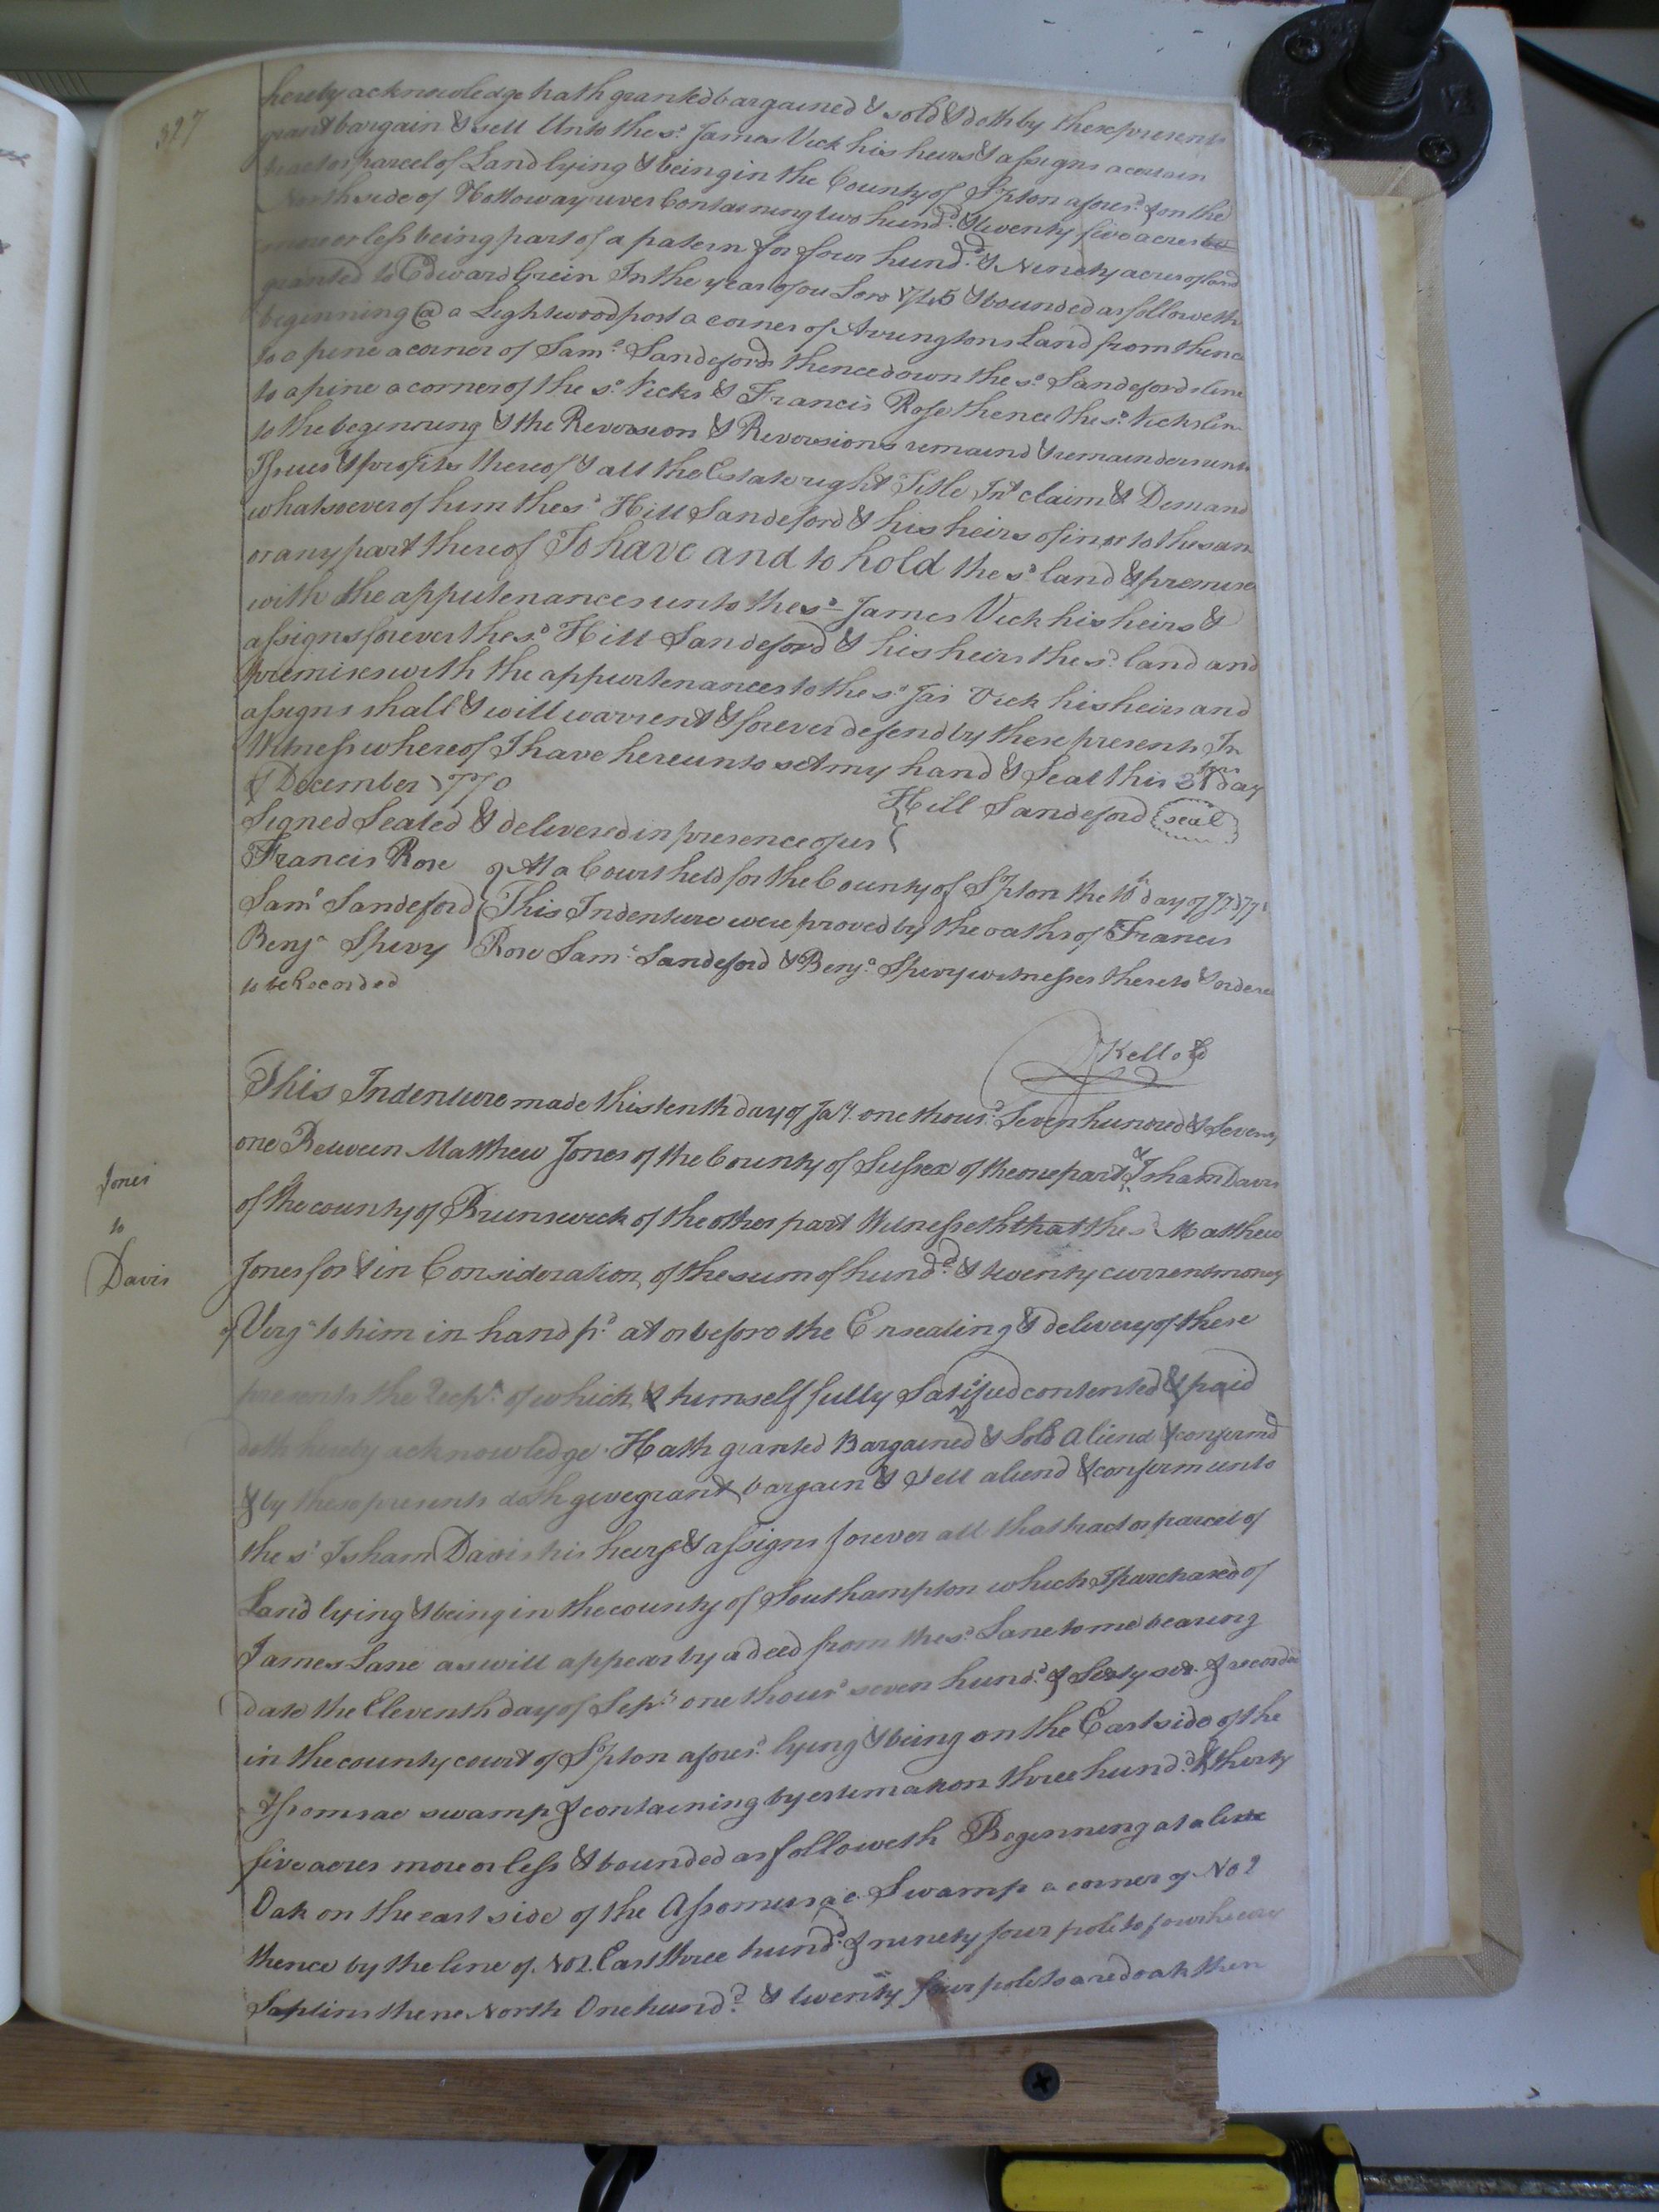 327
hereby acknowledge hath granted bargained & sold & doth by these presents
grant bargain & sell Unto the sd. James Vick his heirs & assigns a certain
tract or parcel of Land lying & being in the County of S°pton afores.d & on the
North side of Nottoway river Containing two hund.d & twenty five acres
more or less being part of a patern for four hund.d & Ninety acres of land
granted to Edward Grein In the year of ou Lord 1745 & bounded as followeth
beginning @ a Lightwood post a corner of Arringtons Land from thence
to a pine a corner of Sam.l Sandefords thence down the s.d Sandefords line
to a pine a corner of the s.d Vicks & Francis Rose thence the s.d Vicks line
to the beginning & the Reversion & Reversions remaind & remainders rents
Issues & profits thereof & all the Estate right Title Int claim & Demand
whatsoever of him the s.d Hill Sandeford & his heirs of in or to the sam
or any part thereof To have and to hold the s.d land & premises
with the apputenances unto the s.d James Vick his heirs &
assigns forever the s.d Hill Sandeford & his heirs the s.d land and
premises with the appurtenances to the s.d Jas Vick his heirs and
assigns shall & will warrent & forever defend by these presents In
Witness whereof I have hereunto set my hand & Seal this 31 day
of December 1770
Hill Sandeford seal
Signed Sealed & delivered in presence of us
Francis Rose At a Court held for the County of S°pton the 10th day of
Sam.l Sandeford This Indenture were proved by the oaths of Francis
Benj.a Spivy Rose Sam.l Sandeford & Benj.a Spivy witnesses thereto & ordered
to be Recorded
Kello
This Indenture made this tenth day of Jay. one thous.d Seven hundred & Seventy
one Between Matthew Jones of the County of Sussex of the one part & Isham Davis
Jones
to
Davis
of the county of Brunswick of the other part Witnesseth that the s.d Matthew
Jones for & in Consideration of the sum of hund.d & twenty current money
of Verg.a to him in hand p.d at or before the Ensealing & delivery of these
presents the Recp.t of which & himself fully Satisfied contented & paid
doth hereby acknowledge Hath granted Bargained & Sold aliend & confirmd
& by these presents doth give grant bargain & Sell aliend & confirm unto
the s.d Isham Davis his heirs & assigns forever all that tract or parcel of
Land lying & being in the county of Southampton which I purchased of
James Lane as will appear by a deed from the s.d Lane to me bearing
date the Eleventh day of Sep.r one thous.d seven hund.d & Sixty six & recorded
in the county court of S°pton afores.d lying & being on the East side of the
Assomsac swamp & containing by estimation three hund.d & thirty
five acres more or less & bounded as followeth Beginning at a live
Oak on the east side of the Assomusac Swamp a corner of No 2
thence by the line of No 2. East three hund.d & ninety four pole to four hicory
Saplins thene North One hund.d & twenty four pole to a red oak then